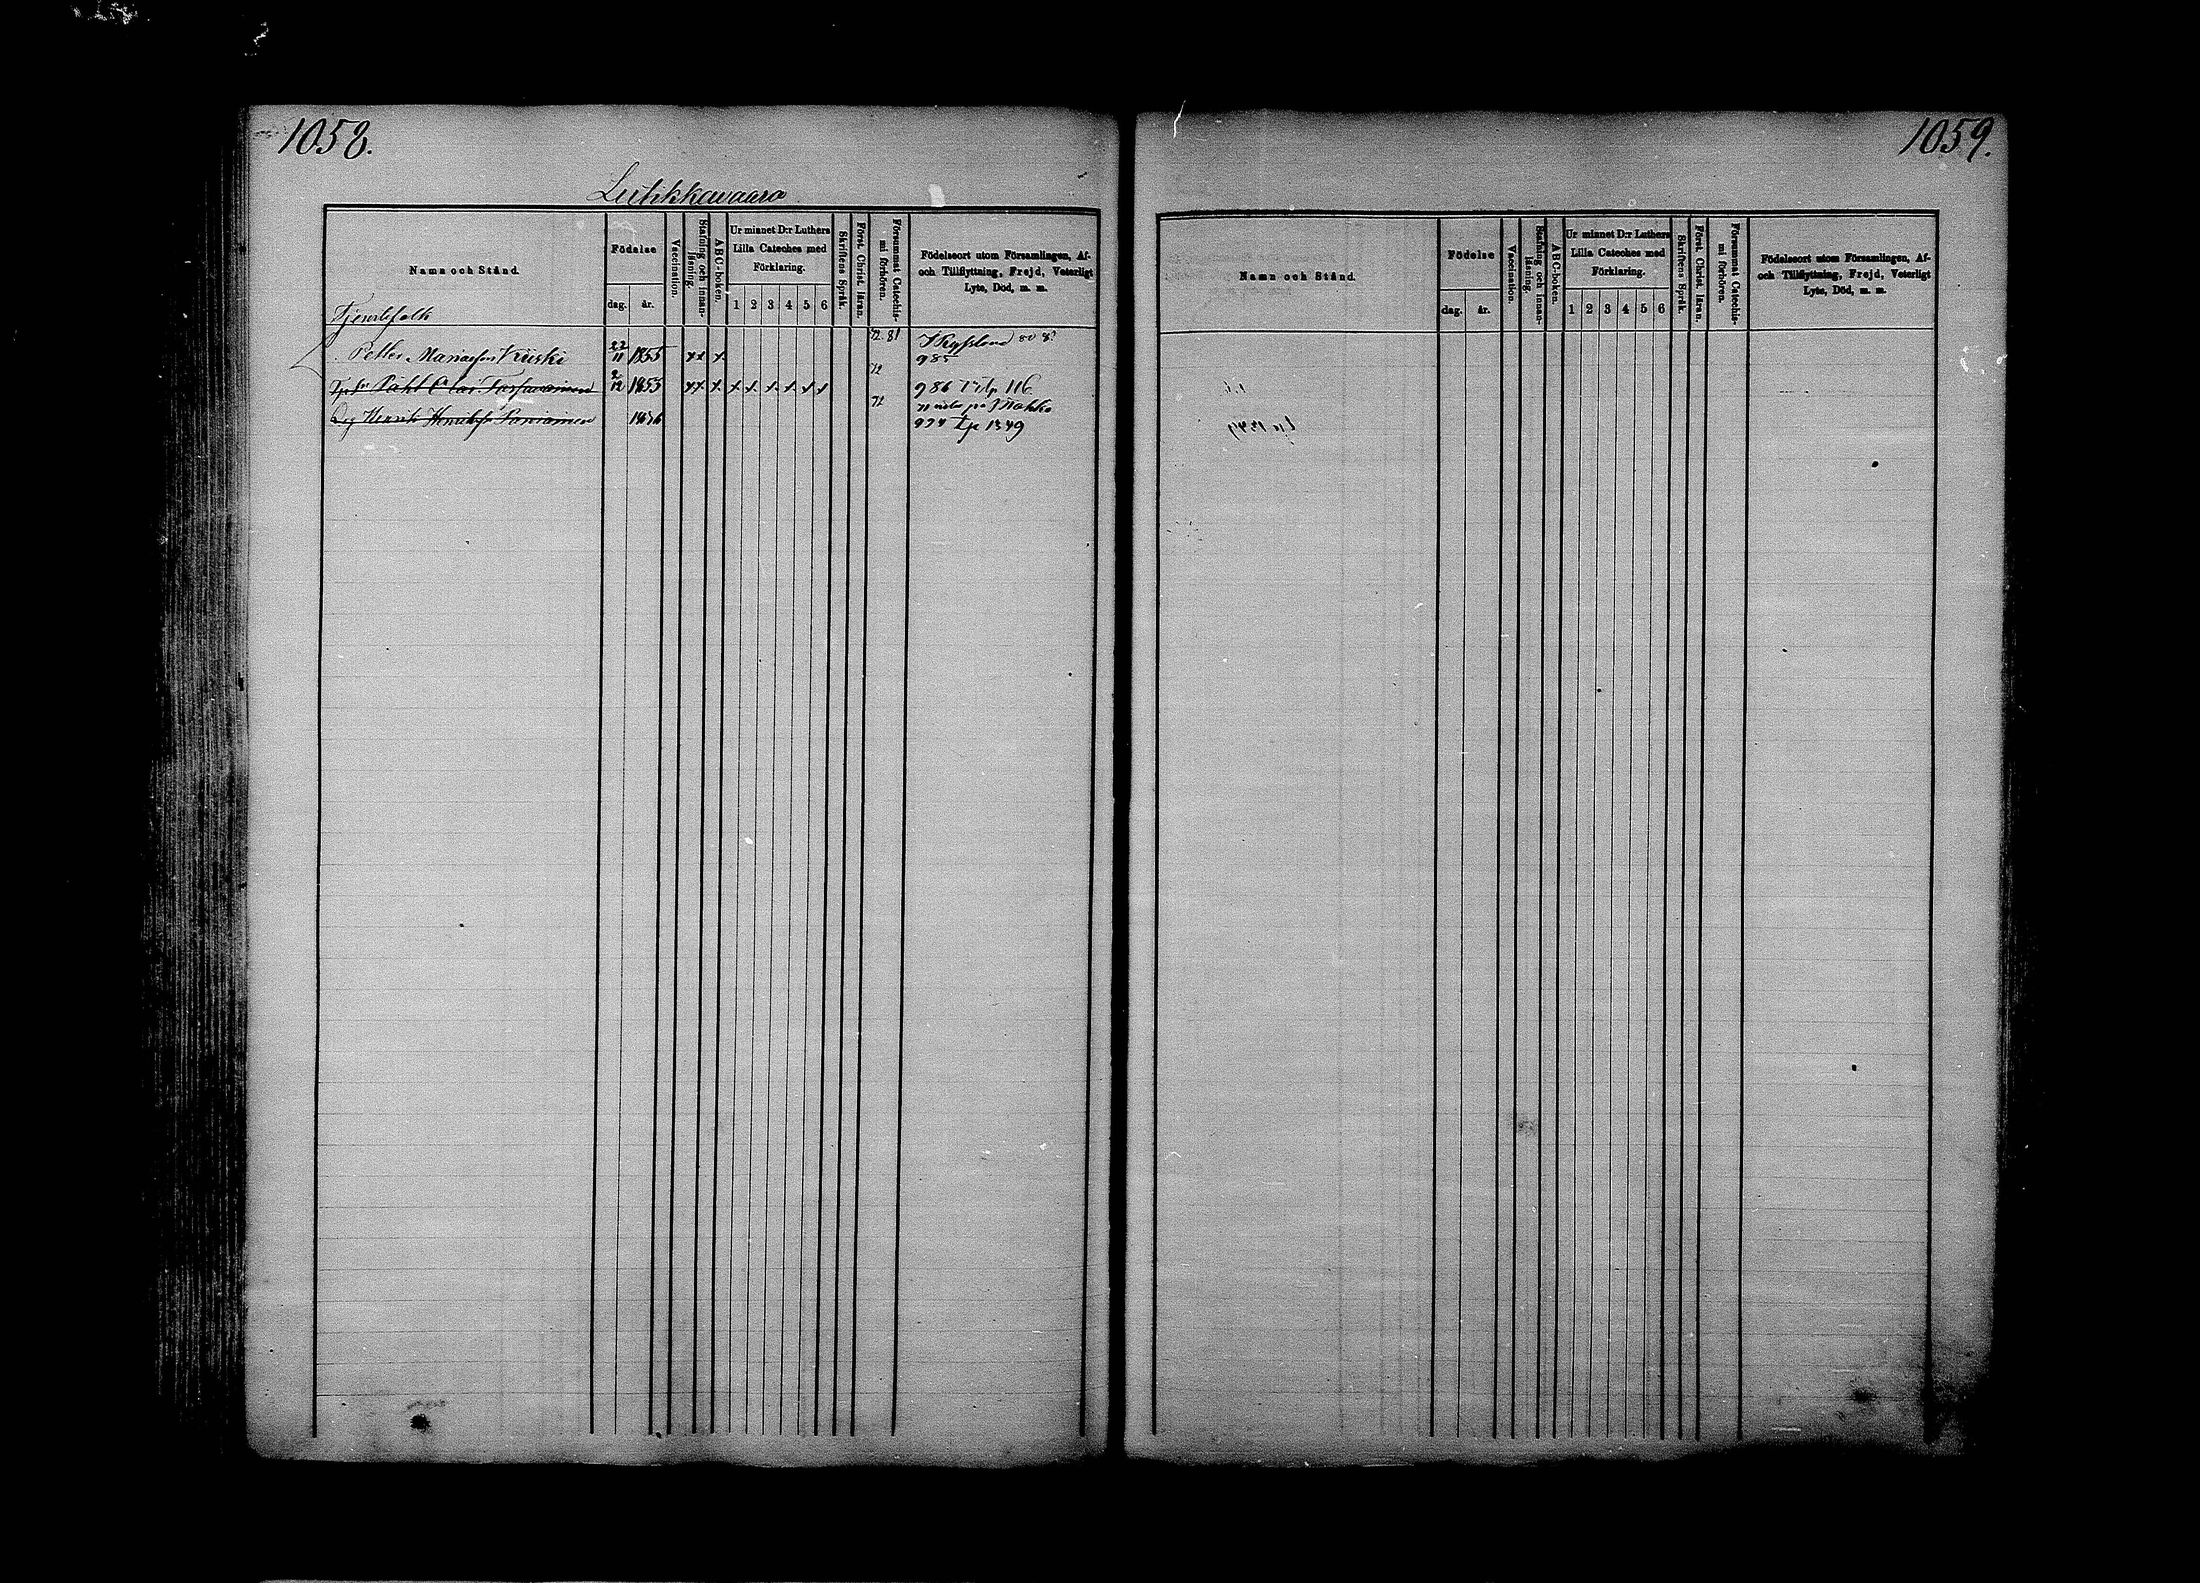 1058.
Luhkkawaara
Namn och Stånd.
Födelse
dag. år.
Vaccination.
Stafning och Innanläsning.
ABC-boken.
Ur minnet D:r Luthers
Lilla Cateches med
Förklaring.
1 2 3 4 5 6
Skriftens Språk.
Först. Christ. läran.
Försummat Catechismi förhören.
Födelseort utom Församlingen, Af-
och Tillflyttning, Frejd, Veterligt
Lyte, Död, m. m.
Tjenstefolk
72. 81
Petter Mariasson Kiiski 22/11 1855 985
Påhl Olas 2/12 1855 986 116
72
Henrik Henriksson 974 1349
1059.
Namn och Stånd.
Födelse
dag. år.
Vaccination.
Stafning och Innanläsning.
ABC-boken.
Ur minnet D:r Luthers
Lilla Cateches med
Förklaring.
1 2 3 4 5 6
Skriftens Språk.
Först. Christ. läran.
Försummat Catechismi förhören.
Födelseort utom Församlingen, Af-
och Tillflyttning, Frejd, Veterligt
Lyte, Död, m. m.